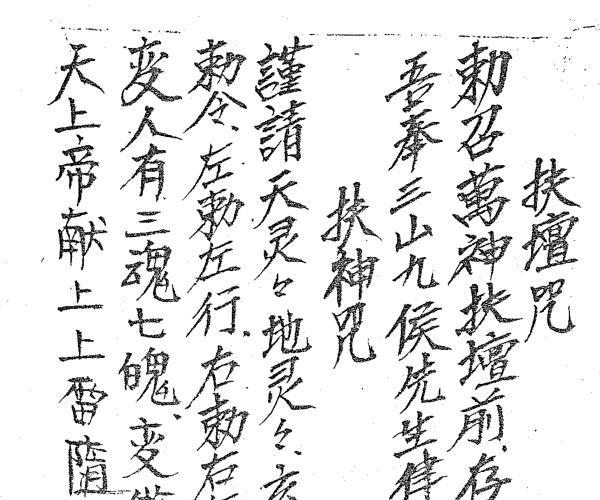 扶壇咒
勅召萬神扶壇前存
吾奉三山九侯先生律
扶神咒
謹請天灵々地灵々
勅令左勅左行右勅右
变人有三魂七魄变
天上帝献上上雷